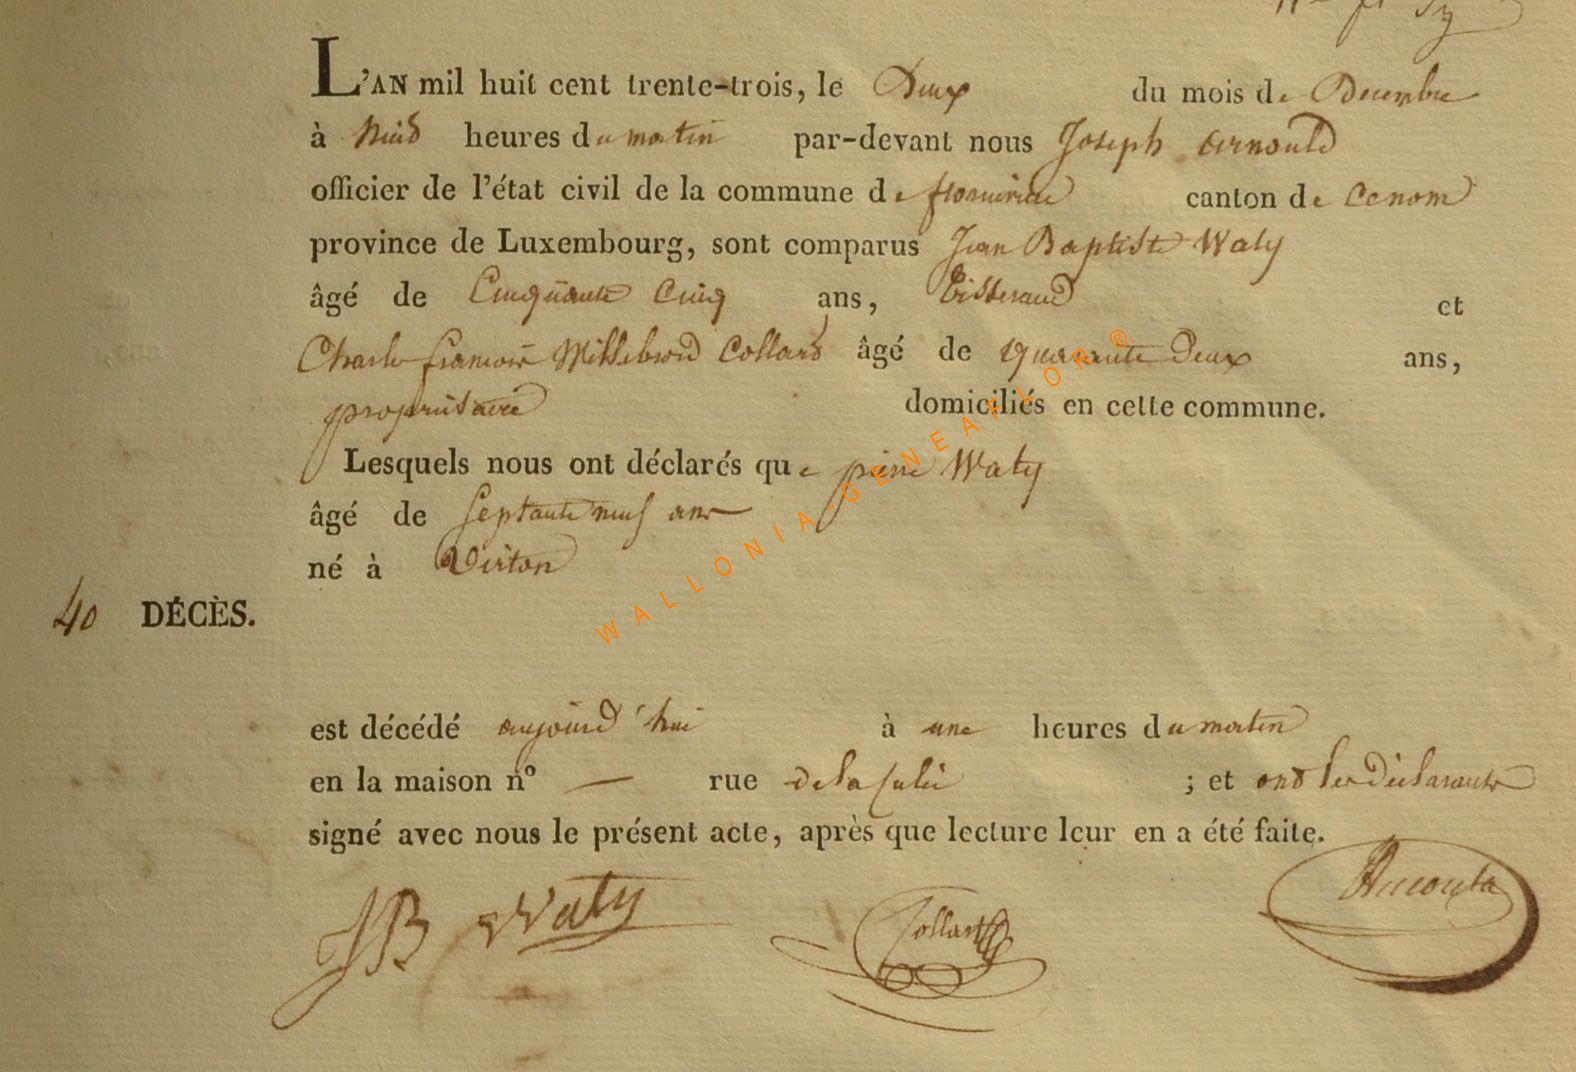 L'AN mil huit cent trente-trois, le Deux du mois de Decembre
à huid heures du matin par-devant nous Joseph arnould
officier de l'état civil de la commune de canton de
province de Luxembourg, sont comparus Jean Baptiste Waty
âgé de Cinquante Cinq ans, tisserand et
Charle francois Willebrord Collard âgé de quarante Deux ans,
propriètaire domiciliés en cette commune.
Lesquels nous ont déclarés que pierre Waty
âgé de septante neuf ans
né à Virton
40 DÉCÈS.
est décédé aujourd'hui à une heures du matin
en la maison n° — rue de la ; et ond les Déclarants
signé avec nous le présent acte, après que lecture leur en a été faite.
JB Waty Collard
WALLONIA-GENEAFLOR©